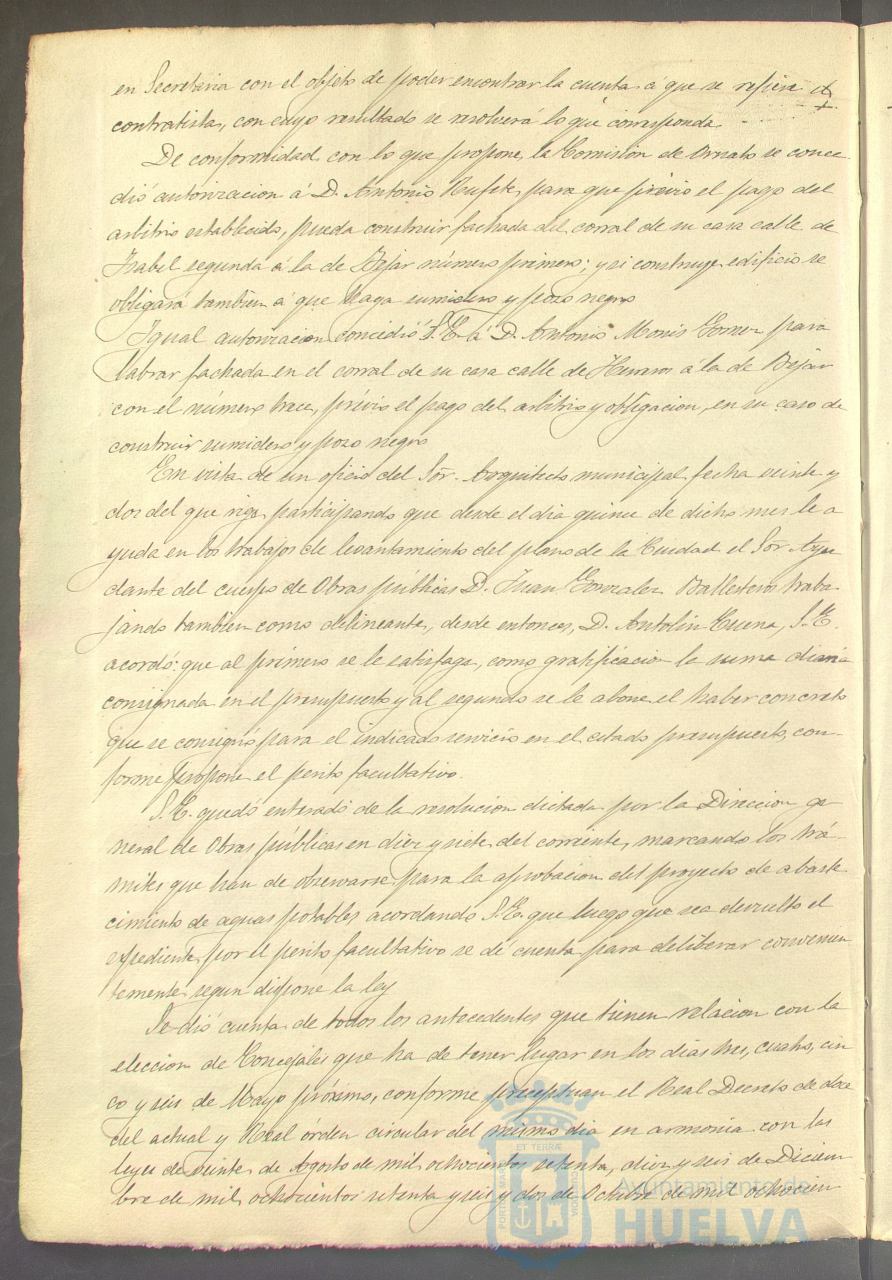 en Secretaria con el objeto de poder encontrar la cuenta á que se refiere el
contratista, con cuyo resultado se resolverá lo que corresponda
De conformidad con lo que propone la Comision de Ornato se conce
dió autorizacion á D. Antonio Rufete, para que prévio el pago del
arbitrio establecido, pueda construir fachada del corral de su casa calle de
Isabel segunda á la de Bejar número primero; y si construye edificio se
obligará tambien á que haga sumidero y pozo negro
Igual autorizacion concedió S. E. á D. Antonio Monis Gomez para
labrar fachada en el corral de su casa calle de Herreros á la de Bejar
con el número trece, prévio el pago del arbitrio y obligacion, en su caso de
construir sumidero y pozo negro
En vista de un oficio del Sor. Arquitecto municipal fecha veinte y
dos del que rige, participando que desde el dia quince de dicho mes le a
yuda en los trabajos de levantamiento del plano de la Ciudad el Sor Ayu
dante del cuerpo de Obras públicas D. Juan Gonzalez Ballesteros traba
jando tambien como delineante, desde entonces, D. Antolin Cuena, S. E.
acordó: que al primero se le satisfaga, como gratificacion la suma diaria
consignada en el presupuesto y al segundo se le abone el haber concreto
que se consignó para el indicado servicio en el citado presupuesto, con-
forme propone el perito facultativo.
S. E. quedó enterado de la resolucion dictada por la Direccion ge
neral de Obras públicas en diez y siete del corriente, marcando los trá-
mites que han de observarse para la aprobacion del proyecto de abaste
cimiento de aguas potables acordando S. E. que luego que sea devuelto el
expediente por el perito facultativo se dé cuenta para deliberar convenien
temente segun dispone la ley
Se dió cuenta de todos los antecedentes que tienen relacion con la
eleccion de Concejales que ha de tener lugar en los dias tres, cuatro, cin
co y seis de Mayo próximo, conforme preceptuan el Real Decreto de doce
del actual y Real órden circular del mismo dia en armonía con las
leyes de veinte de Agosto de mil ochocientos setenta, diez y seis de Diciem
bre de mil ochocientos setenta y seis y dos de Octubre de mil ochocien
Ayuntamiento de
HUELVA